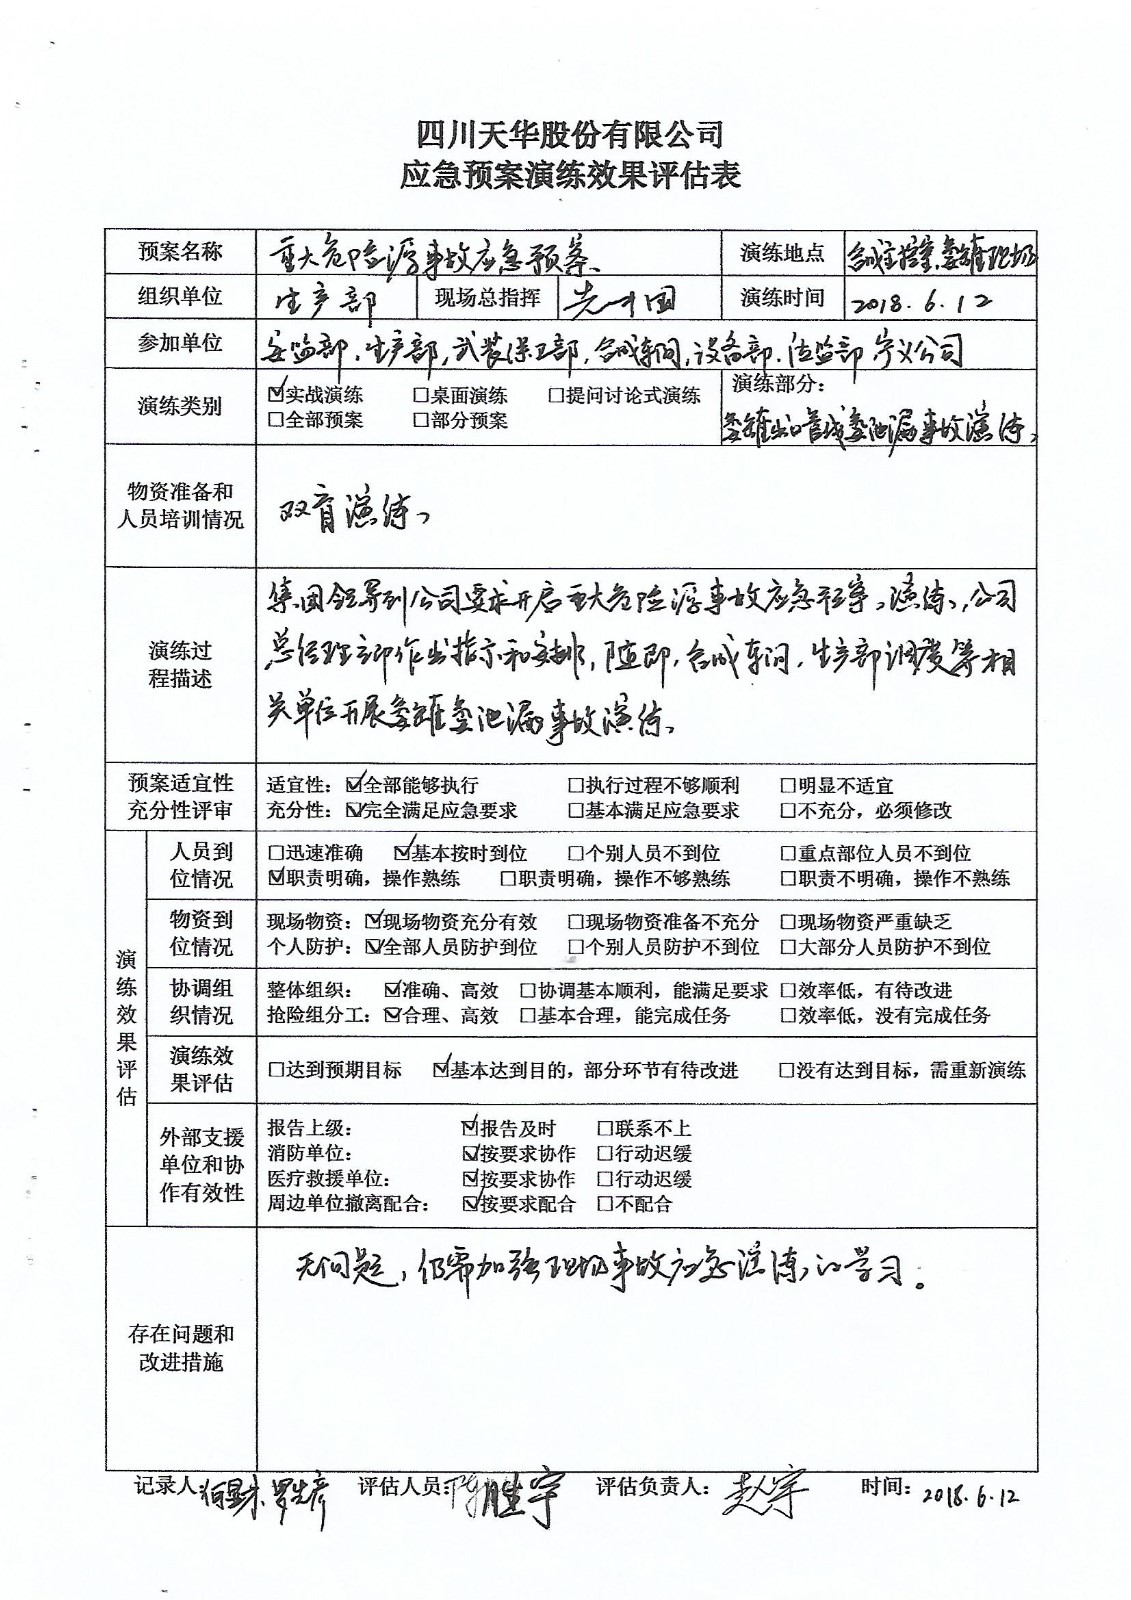 四川天华股份有限公司
应急预案演练效果评估表
预案名称 重大危险源事故应急预案 演练地点 现场
组织单位 生产部 现场总指挥 演练时间 2018.6.12
参加单位 安监部,生产部,武装保卫部,合成车间,设备部.法监部 公司
演练类别 ☑实战演练 □桌面演练 □提问讨论式演练 演练部分:
□全部预案 □部分预案 氨罐出口管线氨泄漏事故演练
物资准备和
人员培训情况 双盲演练
集团领导到公司要求开启重大危险源事故应急 演练,公司
演练过
程描述 总经理立即作出指示和安排,随即,合成车间,生产部调度等相
关单位开展氨罐氨泄漏事故演练
预案适宜性 适宜性: ☑全部能够执行 □执行过程不够顺利 □明显不适宜
充分性评审 充分性: ☑完全满足应急要求 □基本满足应急要求 □不充分,必须修改
演练效果评估
人员到 □迅速准确 ☑基本按时到位 □个别人员不到位 □重点部位人员不到位
位情况 ☑职责明确,操作熟练 □职责明确,操作不够熟练 □职责不明确,操作不熟练
物资到 现场物资: ☑现场物资充分有效 □现场物资准备不充分 □现场物资严重缺乏
位情况 个人防护: ☑全部人员防护到位 □个别人员防护不到位 □大部分人员防护不到位
协调组 整体组织: ☑准确、高效 □协调基本顺利,能满足要求 □效率低,有待改进
织情况 抢险组分工: ☑合理、高效 □基本合理,能完成任务 □效率低,没有完成任务
演练效
果评估 □达到预期目标 ☑基本达到目的,部分环节有待改进 □没有达到目标,需重新演练
外部支援
单位和协
作有效性
报告上级: ☑报告及时 □联系不上
消防单位: ☑按要求协作 □行动迟缓
医疗救援单位: ☑按要求协作 □行动迟缓
周边单位撤离配合: ☑按要求配合 □不配合
存在问题和
改进措施 无问题,仍需加强现场事故应急演练的学习。
记录人: 评估人员: 胜宇 评估负责人: 赵宇 时间: 2018.6.12